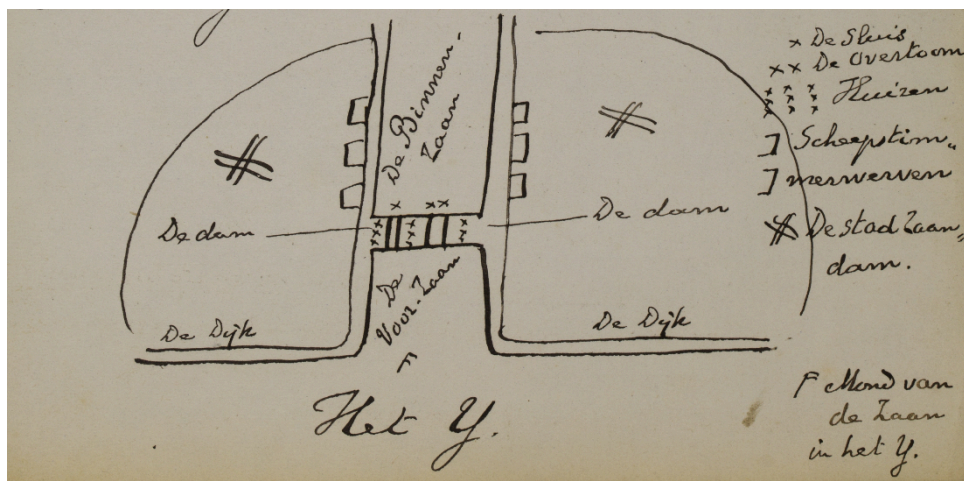 De Binnen-
Zaan
De dam
De dam
De
Voor-Zaan
De Dijk
De Dijk
F
Het Y.
x De Sluis
xx De Overtoom
Huizen
Scheepstim„
merwerven
De stad Zaan„
dam.
F Mond van
de Zaan
in het Y.